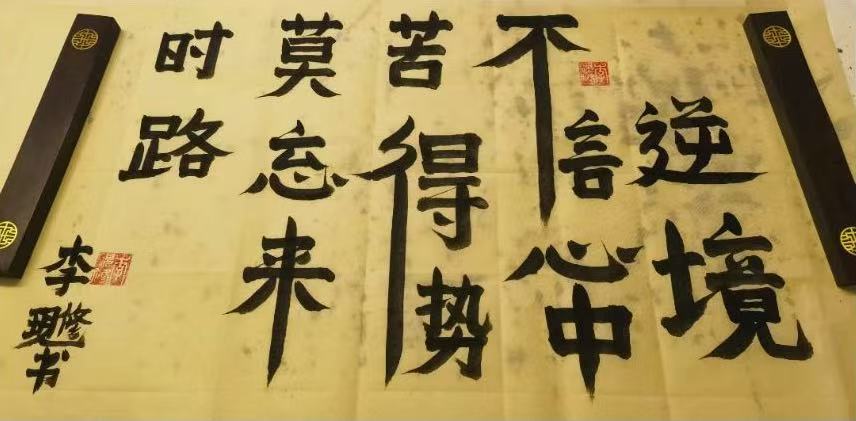 逆境
不言心中
苦得势
莫忘来
时路
李书